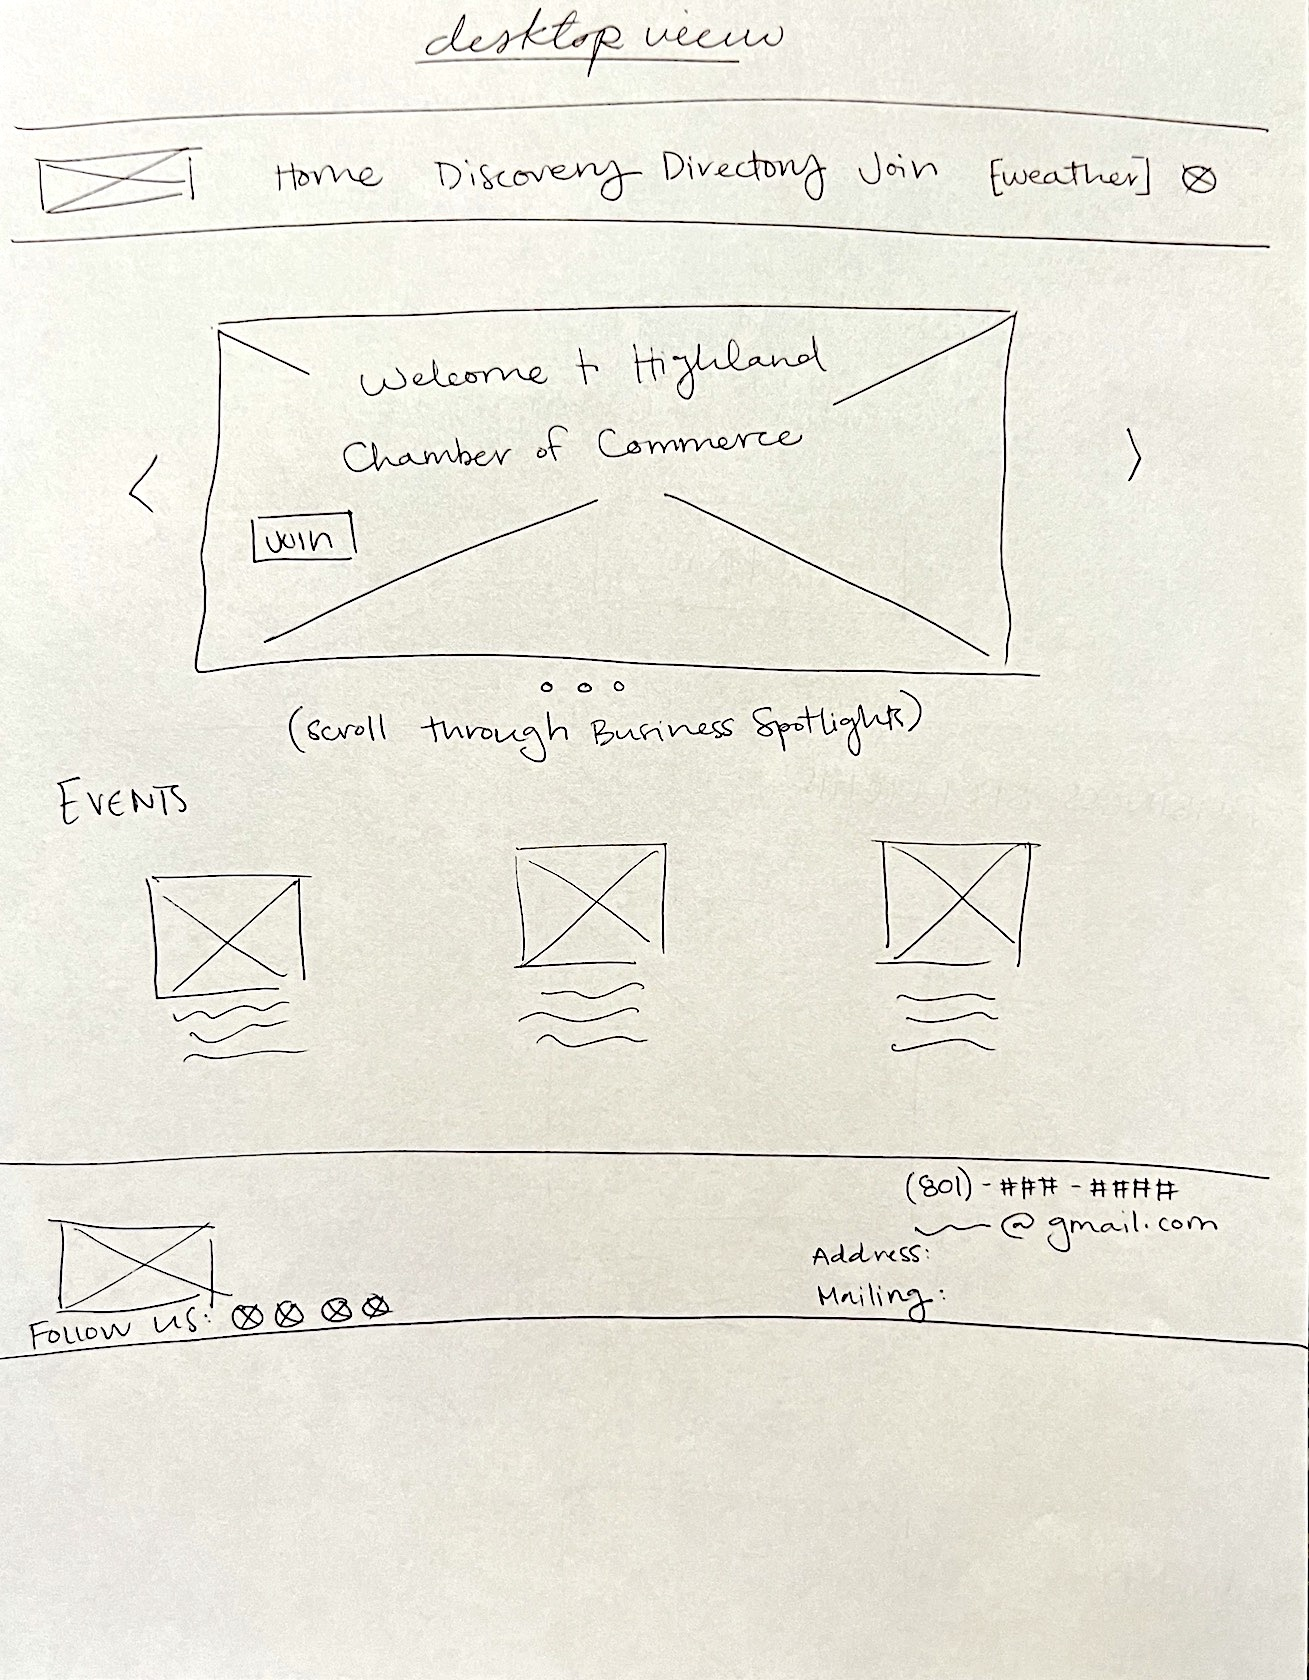 desktop view
Home Discovery Directory Join [weather]
Welcome to Highland
Chamber of Commerce
Join
(scroll through Business Spotlights)
EVENTS
(801)-###-####
@gmail.com
Address:
Mailing:
Follow us: